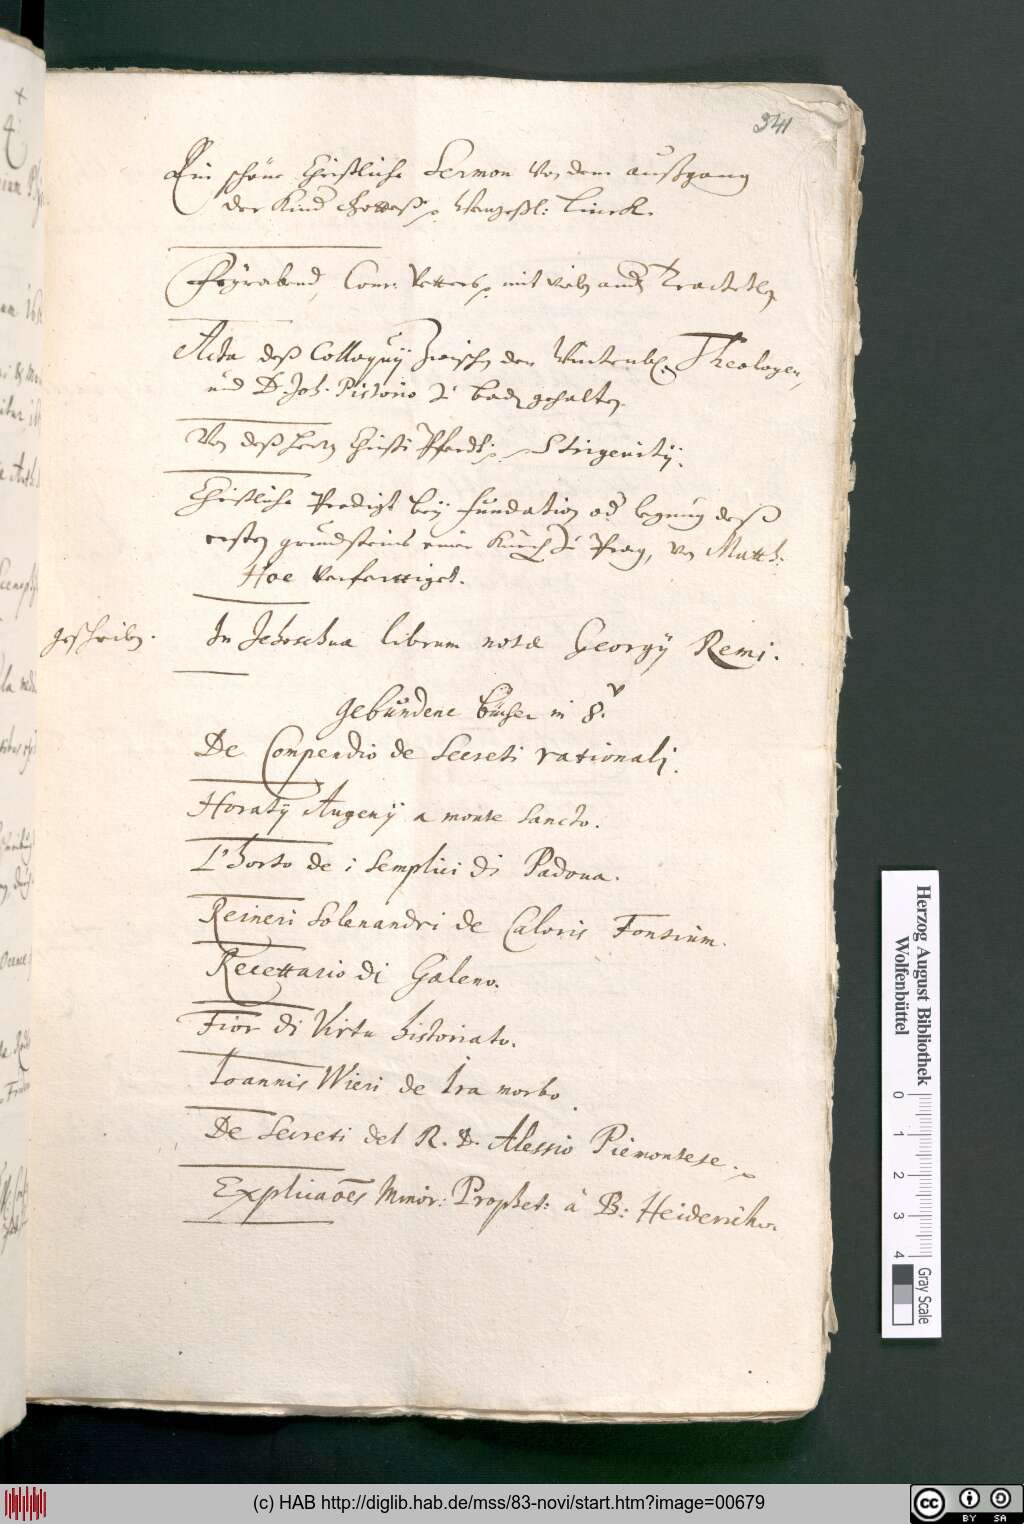 341
Ein schöne Christliche Sermon von dem außgang
der Kind Gotteß Wenzeßl: Linck.
Feÿrabend, Conr: Vetters mit vielen andern Tractetlen
Acta deß Colloquÿ zwischen den Würtenb. Theologen,
und D. Joh. Pistorio zu Baden gehalten.
Von deß Herrn Christi Strigenitÿ.
Christliche Predigt beÿ fundation oder legung deß
ersten grundsteins einer Kirch zu Prag, von Matth:
Hoe verferttiget.
geschriben.
In Jehoschua librum notæ Georgÿ Remi.
gebundene Bücher in 8.v
De Compendio de Secreti rationali.
Horatÿ Augenÿ a monte sancto.
L'horto de i semplici di Padoua.
Reineri Solenandri de Caloris Fontium.
Recettario di Galeno.
Fior di Virtu historiato.
Ioannis Wieri de Ira morbo.
De Secreti del R. D. Alessio Piemontese.
Explicaōes Minor: Prophet: à B: Heidericho.
Herzog August Bibliothek
Wolfenbüttel
0 1 2 3 4
Gray Scale
(c) HAB http://diglib.hab.de/mss/83-novi/start.htm?image=00679
cc BY SA